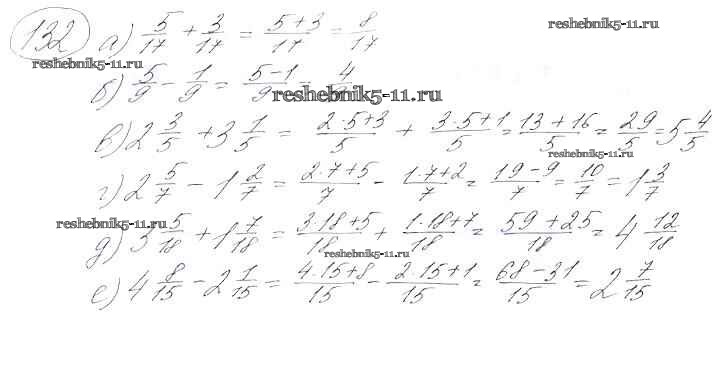 reshebnik5-11.ru
132 а) 5/17 + 3/17 = (5+3)/17 = 8/17
reshebnik5-11.ru
б) 5/9 - 1/9 = (5-1)/9 = 4/9
reshebnik5-11.ru
в) 2 3/5 + 3 1/5 = (2·5+3)/5 + (3·5+1)/5 = (13+16)/5 = 29/5 = 5 4/5
reshebnik5-11.ru
г) 2 5/7 - 1 2/7 = (2·7+5)/7 - (1·7+2)/7 = (19-9)/7 = 10/7 = 1 3/7
reshebnik5-11.ru
д) 3 5/18 + 1 7/18 = (3·18+5)/18 + (1·18+7)/18 = (59+25)/18 = 4 12/18
reshebnik5-11.ru
е) 4 8/15 - 2 1/15 = (4·15+8)/15 - (2·15+1)/15 = (68-31)/15 = 2 7/15